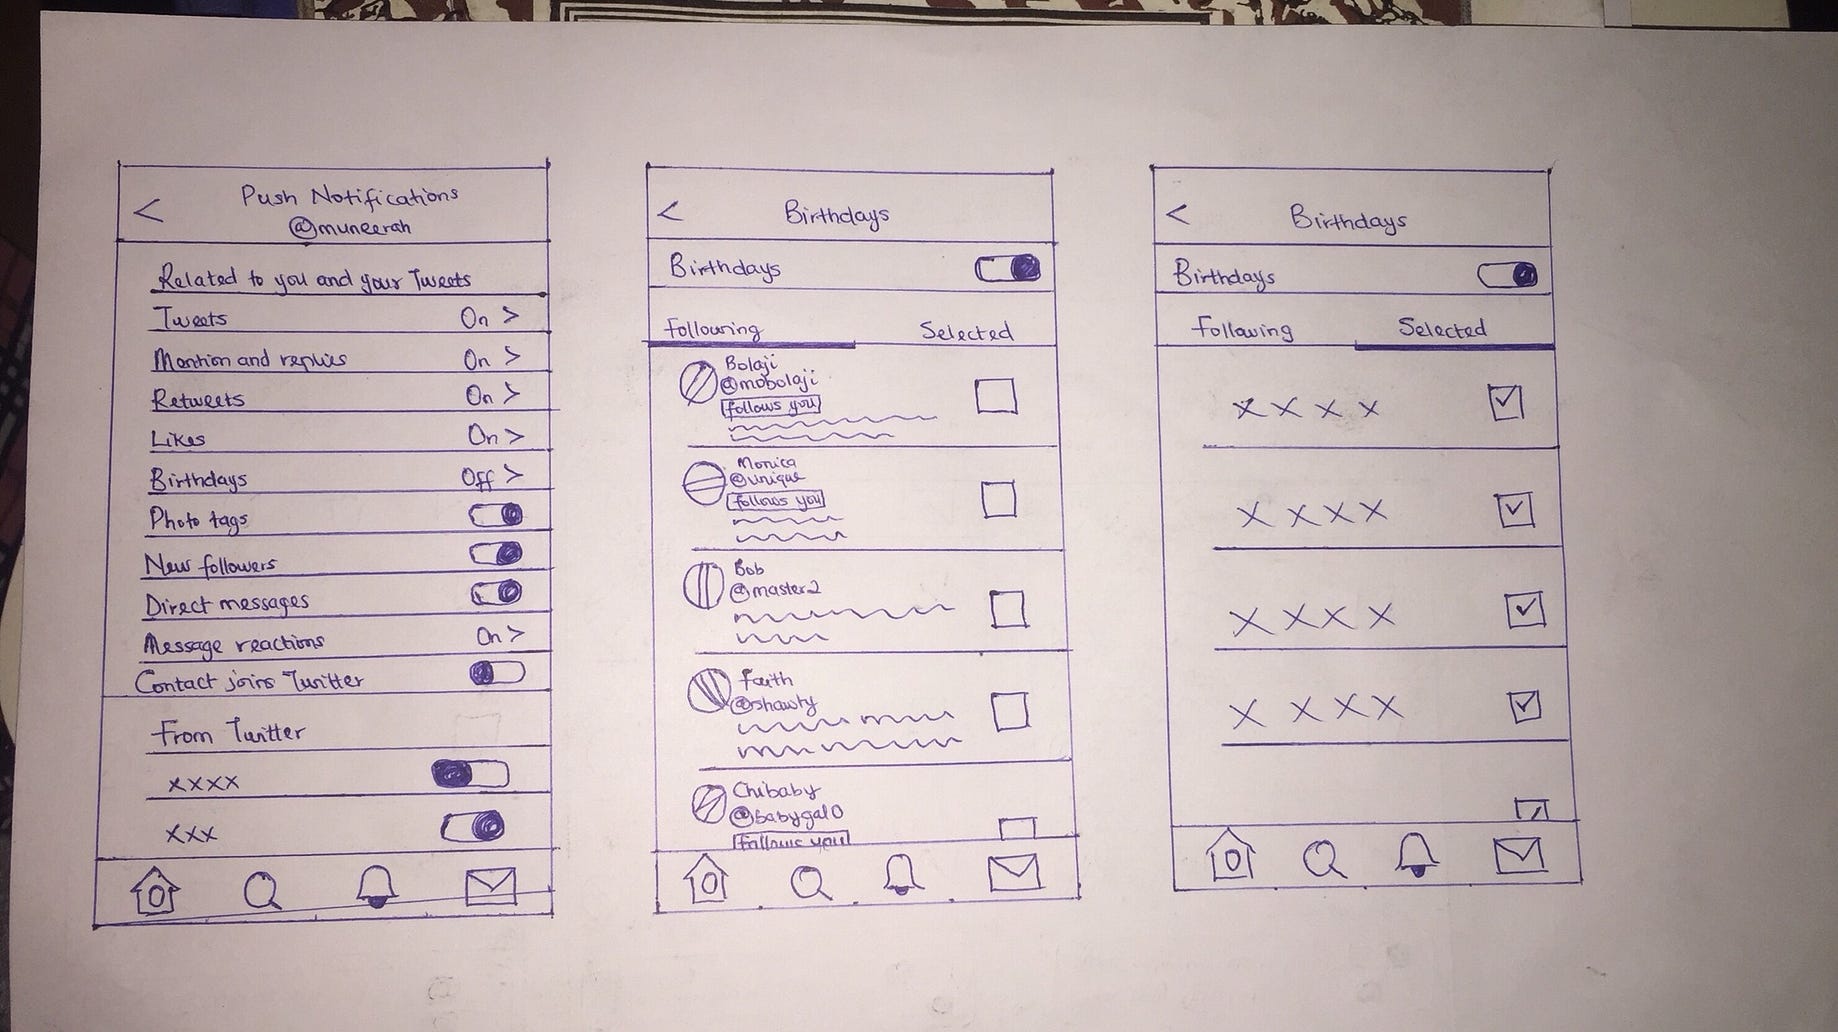 <
Push Notifications
@muneerah
Related to you and your Tweets
Tweets On >
Mention and replies On >
Retweets On >
Likes On >
Birthdays Off >
Photo tags
New followers
Direct messages
Message reactions On >
Contact joins Twitter
From Twitter
xxxx
xxx
< Birthdays
Birthdays
Following Selected
Bolaji
@mobolaji
follows you
Monica
@unique
follows you
Bob
@master2
Faith
@shawty
Chibaby
@babygal0
follows you
< Birthdays
Birthdays
Following Selected
x x x x
x x x x
x x x x
x x x x